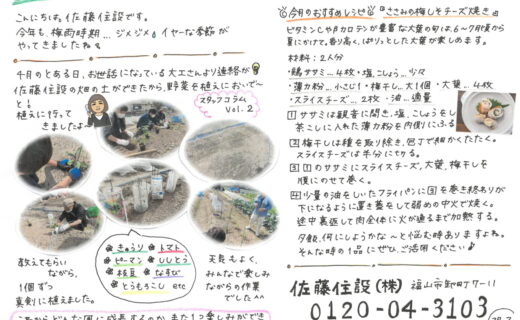 こんにちは。佐藤住設です。
今年も、梅雨時期…ジメジメ イヤーな季節が
やってきましたね。
4月のとある日、お世話になっている大工さんより連絡が
佐藤住設の畑の土ができたから、野菜を植えにおいで〜
と!
植えに行って
きましたよー
スタッフコラム
vol.2
きゅうり トマト
ピーマン ししとう
枝豆 なすび
とうもろこし etc
教えてもらい
ながら、
1個ずつ
真剣に植えました。
天気もよく、
みんなで楽しみ
ながらの作業
でした^^
今月のおすすめレシピ ささみの梅しそチーズ焼き
ビタミンCやβカロテンが豊富な大葉の旬は、6〜7月頃から
夏にかけて。香り高く、ぱりっとした大葉が楽しめます。
材料:2人分
・鶏ササミ…4枚・塩、こしょう…少々
・薄力粉…小さじ1・梅干し…大1個・大葉…4枚
・スライスチーズ…2枚・油…適量
1 ササミは観音に開き、塩、こしょうをし
茶こしに入れた薄力粉を内側にふる
2 梅干しは種を取り除き、包丁で細かくたたく。
スライスチーズは半分にする。
3 1のササミにスライスチーズ、大葉、梅干しを
順にのせて巻く。
4 少量の油をしいたフライパンに3を巻き終わりが
下になるように置き蓋をして弱めの中火で焼く。
途中裏返して肉全体に火が通るまで加熱する。
夕飯、何にしようかな〜と悩む時ありますよね。
そんな時の1品にぜひ、ご活用ください♪
佐藤住設(株) 福山市
0120-04-3103